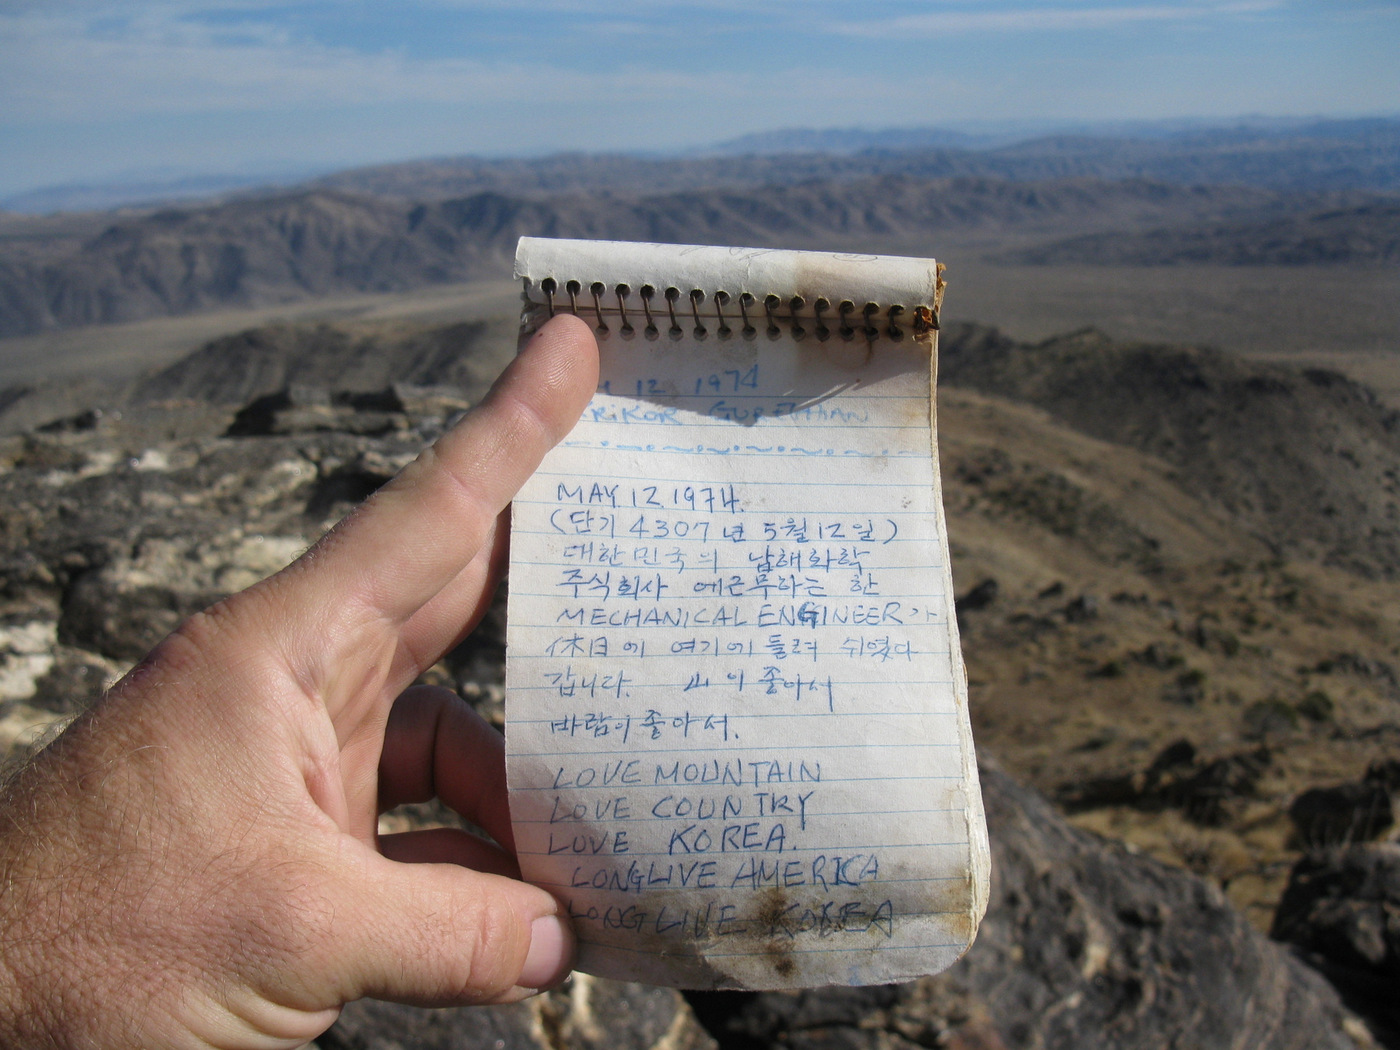 12 1974
RIKOR
MAY.12.1974.
(단기 4307년 5월 12일)
대한민국의 남해화학
주식회사 에근무하는 한
MECHANICAL ENGINEER가
休日에 여기에 들려 쉬였다
갑니다. 山이 좋아서
바람이 좋아서.
LOVE MOUNTAIN
LOVE COUNTRY
LOVE KOREA.
LONGLIVE AMERICA
LONGLIVE KOREA